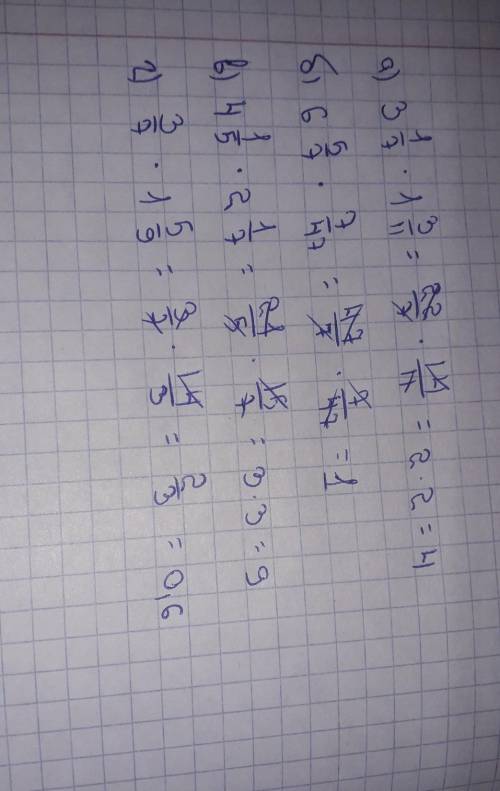 а) 3 1/7 · 1 3/11 = 22/7 · 14/11 = 2 · 2 = 4
б) 6 5/7 · 7/47 = 47/7 · 7/47 = 1
в) 4 1/5 · 2 1/7 = 21/5 · 15/7 = 3 · 3 = 9
г) 3/7 · 1 5/9 = 3/7 · 14/3 = 2/3 = 0,6